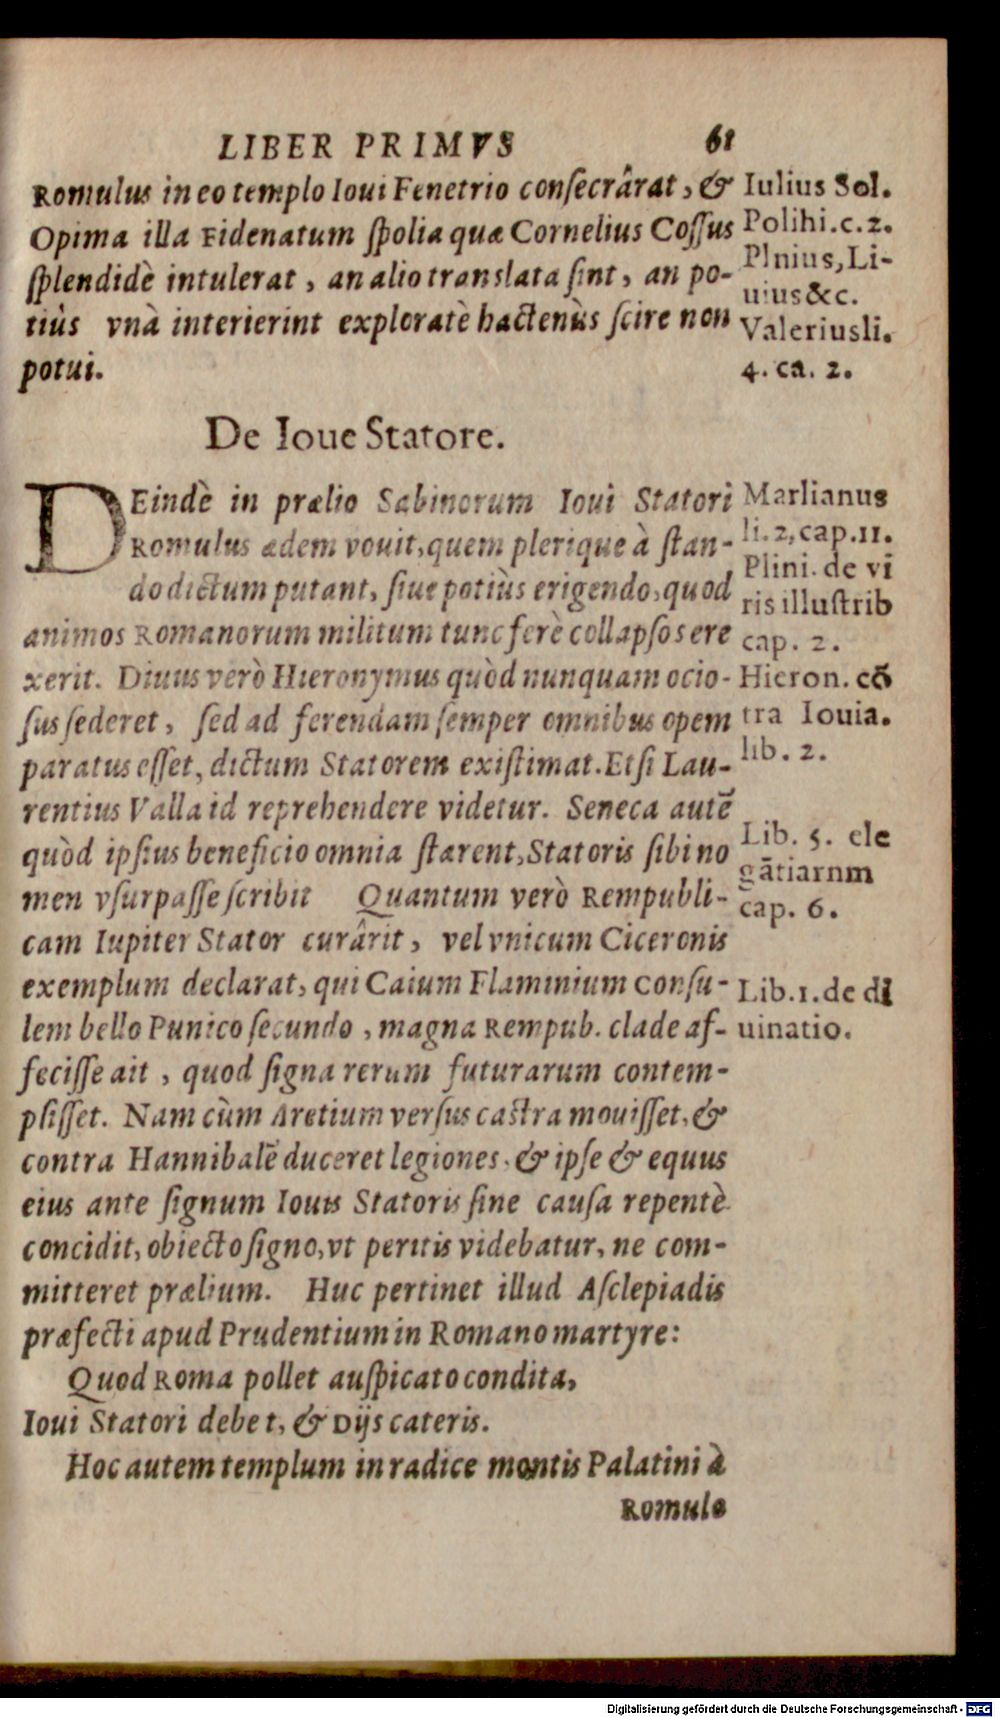 LIBER PRIMVS 61
Romulus in eo templo Ioui Fenetrio conſecrârat, &
Opima illa Fidenatum ſpolia quæ Cornelius Coſſus
ſplendidè intulerat, an alio translata ſint, an po-
tiùs vnà interierint exploratè hactenùs ſcire non
potui.
Iulius Sol.
Polihi.c.2.
Plnius, Li-
uius &c.
Valerius li.
4. ca. 2.
De Ioue Statore.
DEindè in prælio Sabinorum Ioui Statori
Romulus ædem vouit, quem plerique à ſtan-
do dictum putant, ſiue potiùs erigendo, quod
animos Romanorum militum tunc ferè collapſos ere
xerit. Diuus verò Hieronymus quòd nunquam ocio-
ſus ſederet, ſed ad ferendam ſemper omnibus opem
paratus eſſet, dictum Statorem exiſtimat. Etſi Lau-
rentius Valla id reprehendere videtur. Seneca autē
quòd ipſius beneficio omnia ſtarent, Statoris ſibi no
men vſurpaſſe ſcribit Quantum verò Rempubli-
cam Iupiter Stator curârit, vel vnicum Ciceronis
exemplum declarat, qui Caium Flaminium Conſu-
lem bello Punico ſecundo, magna Rempub. clade af-
feciſſe ait, quod ſigna rerum futurarum contem-
pſiſſet. Nam cùm Aretium verſus caſtra mouiſſet, &
contra Hannibalē duceret legiones, & ipſe & equus
eius ante ſignum Iouis Statoris ſine cauſa repentè
concidit, obiecto ſigno, vt peritis videbatur, ne com-
mitteret prælium. Huc pertinet illud Aſclepiadis
præfecti apud Prudentium in Romano martyre:
Quod Roma pollet auſpicato condita,
Ioui Statori debet, & Dijs cæteris.
Hoc autem templum in radice montis Palatini à
Romulo
Marlianus
li. 2, cap. 11.
Plini. de vi
ris illuſtrib
cap. 2.
Hieron. cō
tra Iouia.
lib. 2.
Lib. 5. ele
gātiarnm
cap. 6.
Lib. 1. de di
uinatio.
Digitalisierung gefördert durch die Deutsche Forschungsgemeinschaft - DFG